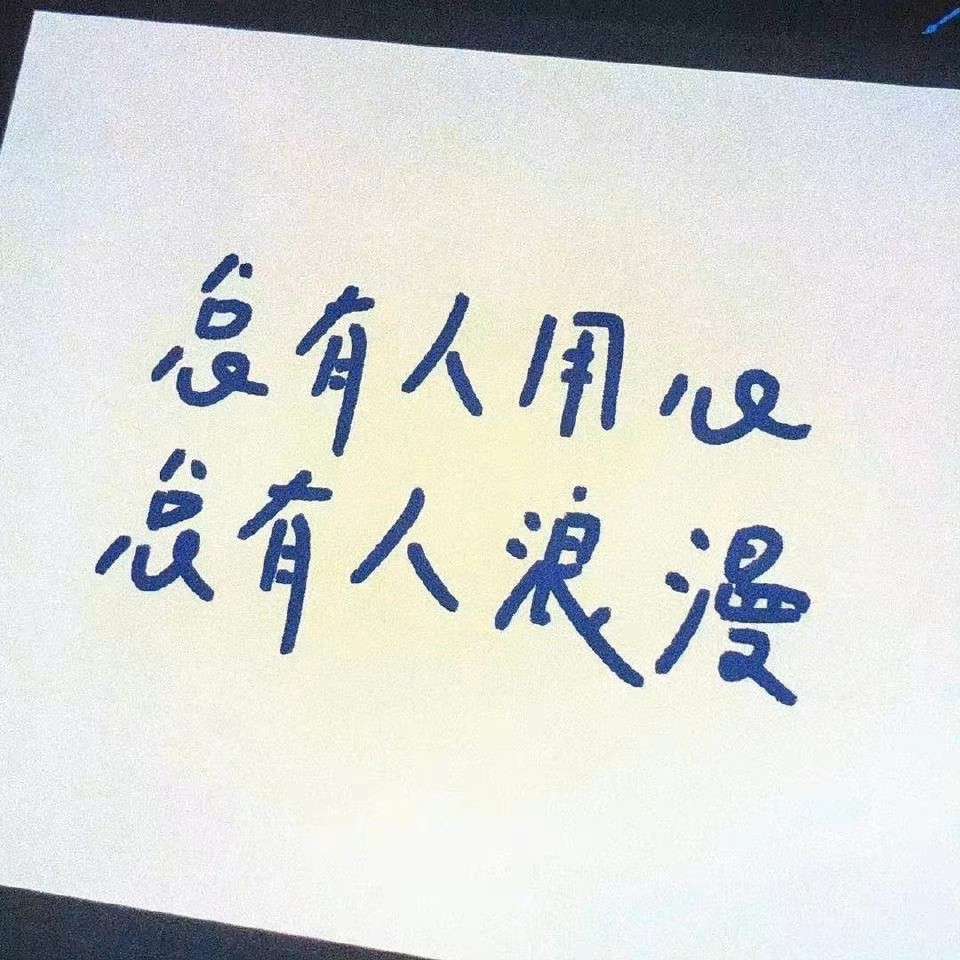 总有人用心
总有人浪漫